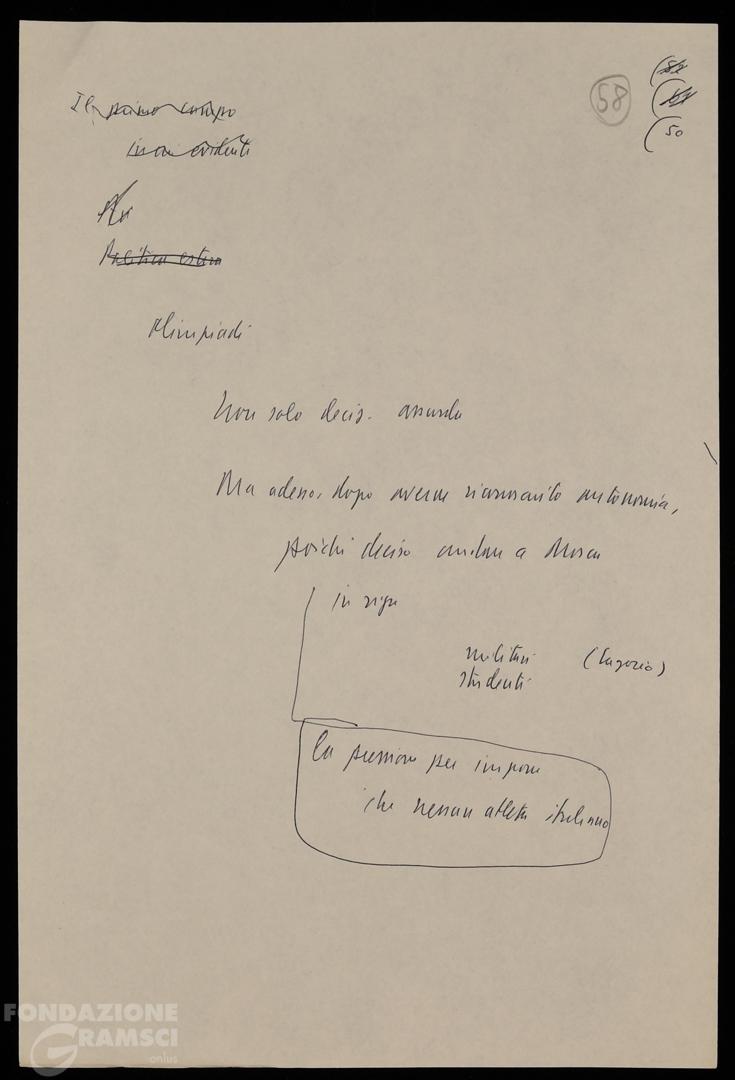 58
50
Il primo campo
Politica estera
Olimpiadi
Non solo decis. assurda
Ma adesso, dopo averne riconosciuto autonomia,
poiché deciso andare a Mosca
in
militari (Lagorio)
studenti
La pressione per imporre
che nessun atleta italiano
FONDAZIONE
GRAMSCI
onlus